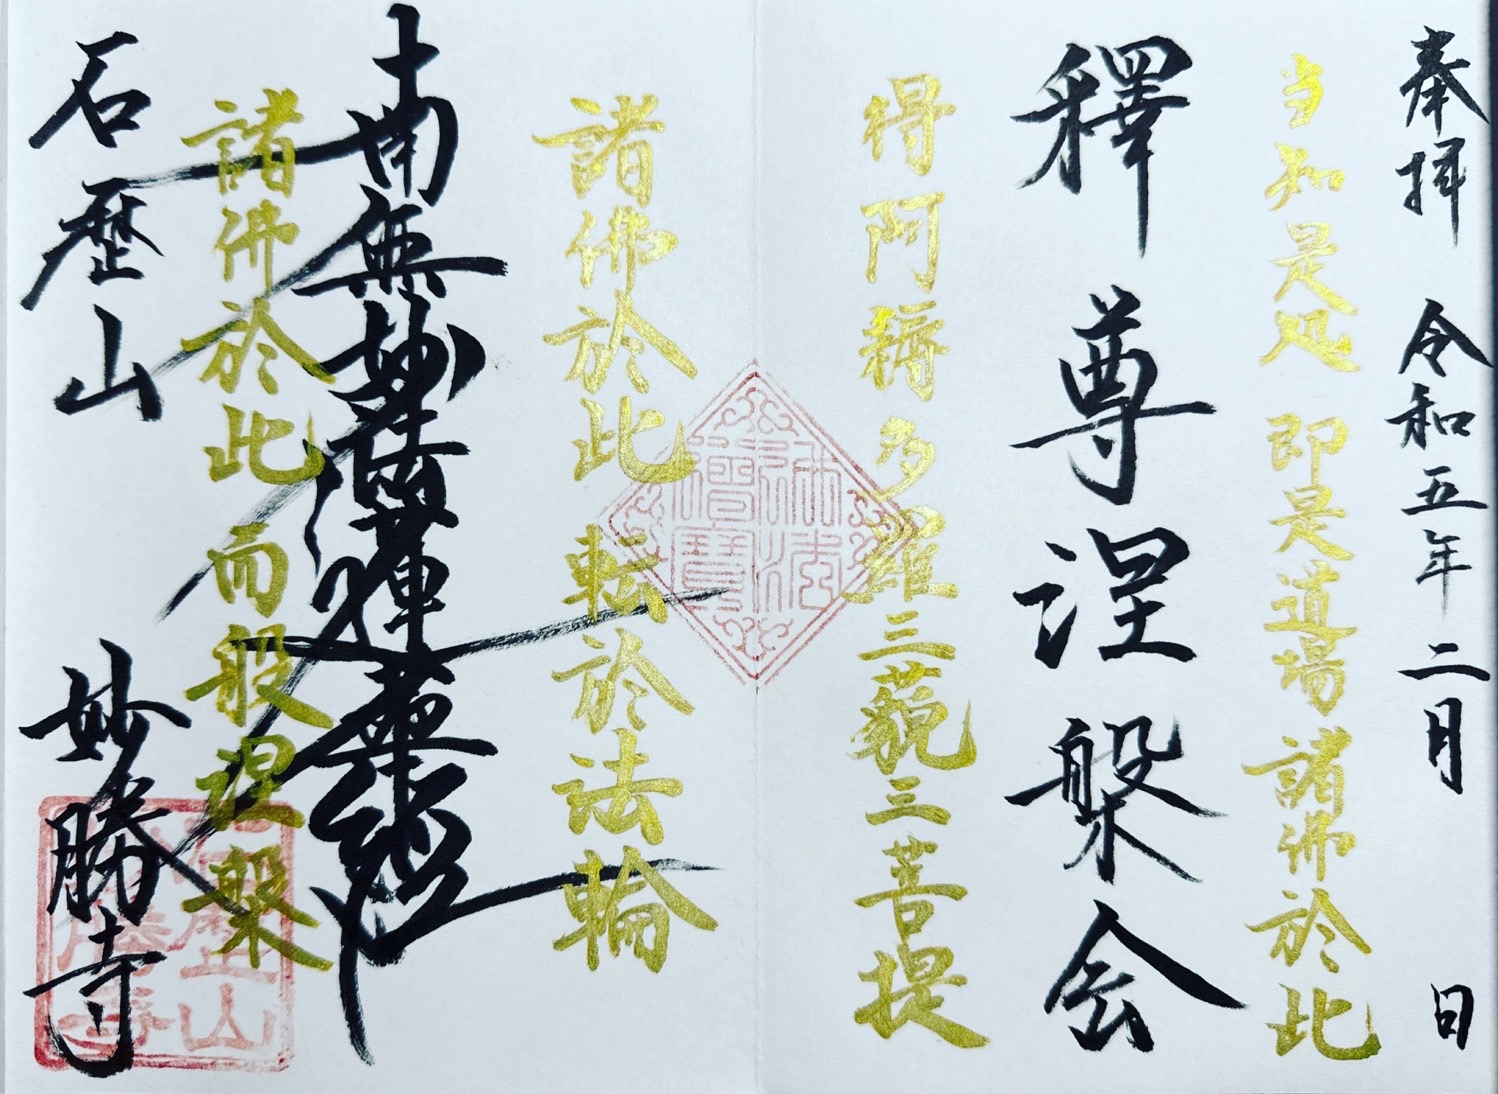 奉拝 令和五年二月 日
当知是処 即是道場 諸佛於此
釋尊涅槃会
得阿耨多羅三藐三菩提
諸佛於此 転於法輪
南無妙法蓮華経
諸佛於此 而般涅槃
石歴山 妙勝寺
佛法僧寳
石歴山妙勝寺